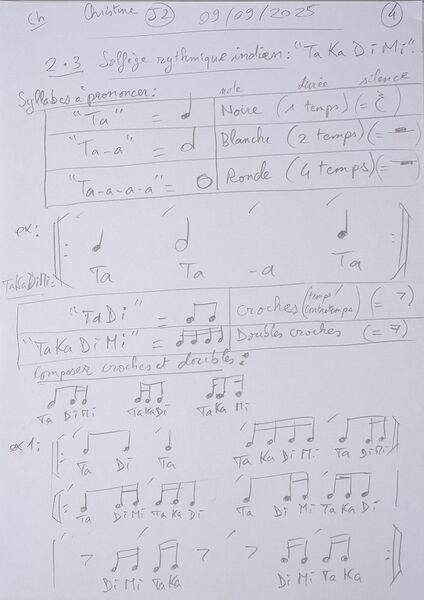 Ch Christine J2 09/09/2025 4
2.3 Solfège rythmique indien: "Ta Ka Di Mi".
Syllabes à prononcer: note durée silence
"Ta" = Noire (1 temps) (= )
"Ta-a" = Blanche (2 temps) (= )
"Ta-a-a-a" = Ronde (4 temps) (= )
ex:
TaKaDiMi: Ta Ta -a Ta
"TaDi" = Croches (temps/contretemps) (= 7)
"TaKaDiMi" = Doubles croches (= 7)
Composer croches et doubles:
Ta DiMi TaKaDi TaKa Mi
ex1:
Ta Di Ta Ta Ka Di Mi Ta Di
Ta Di Mi Ta Ka Di Ta Di Mi Ta Ka Di
Di Mi Ta Ka Di Mi Ta Ka